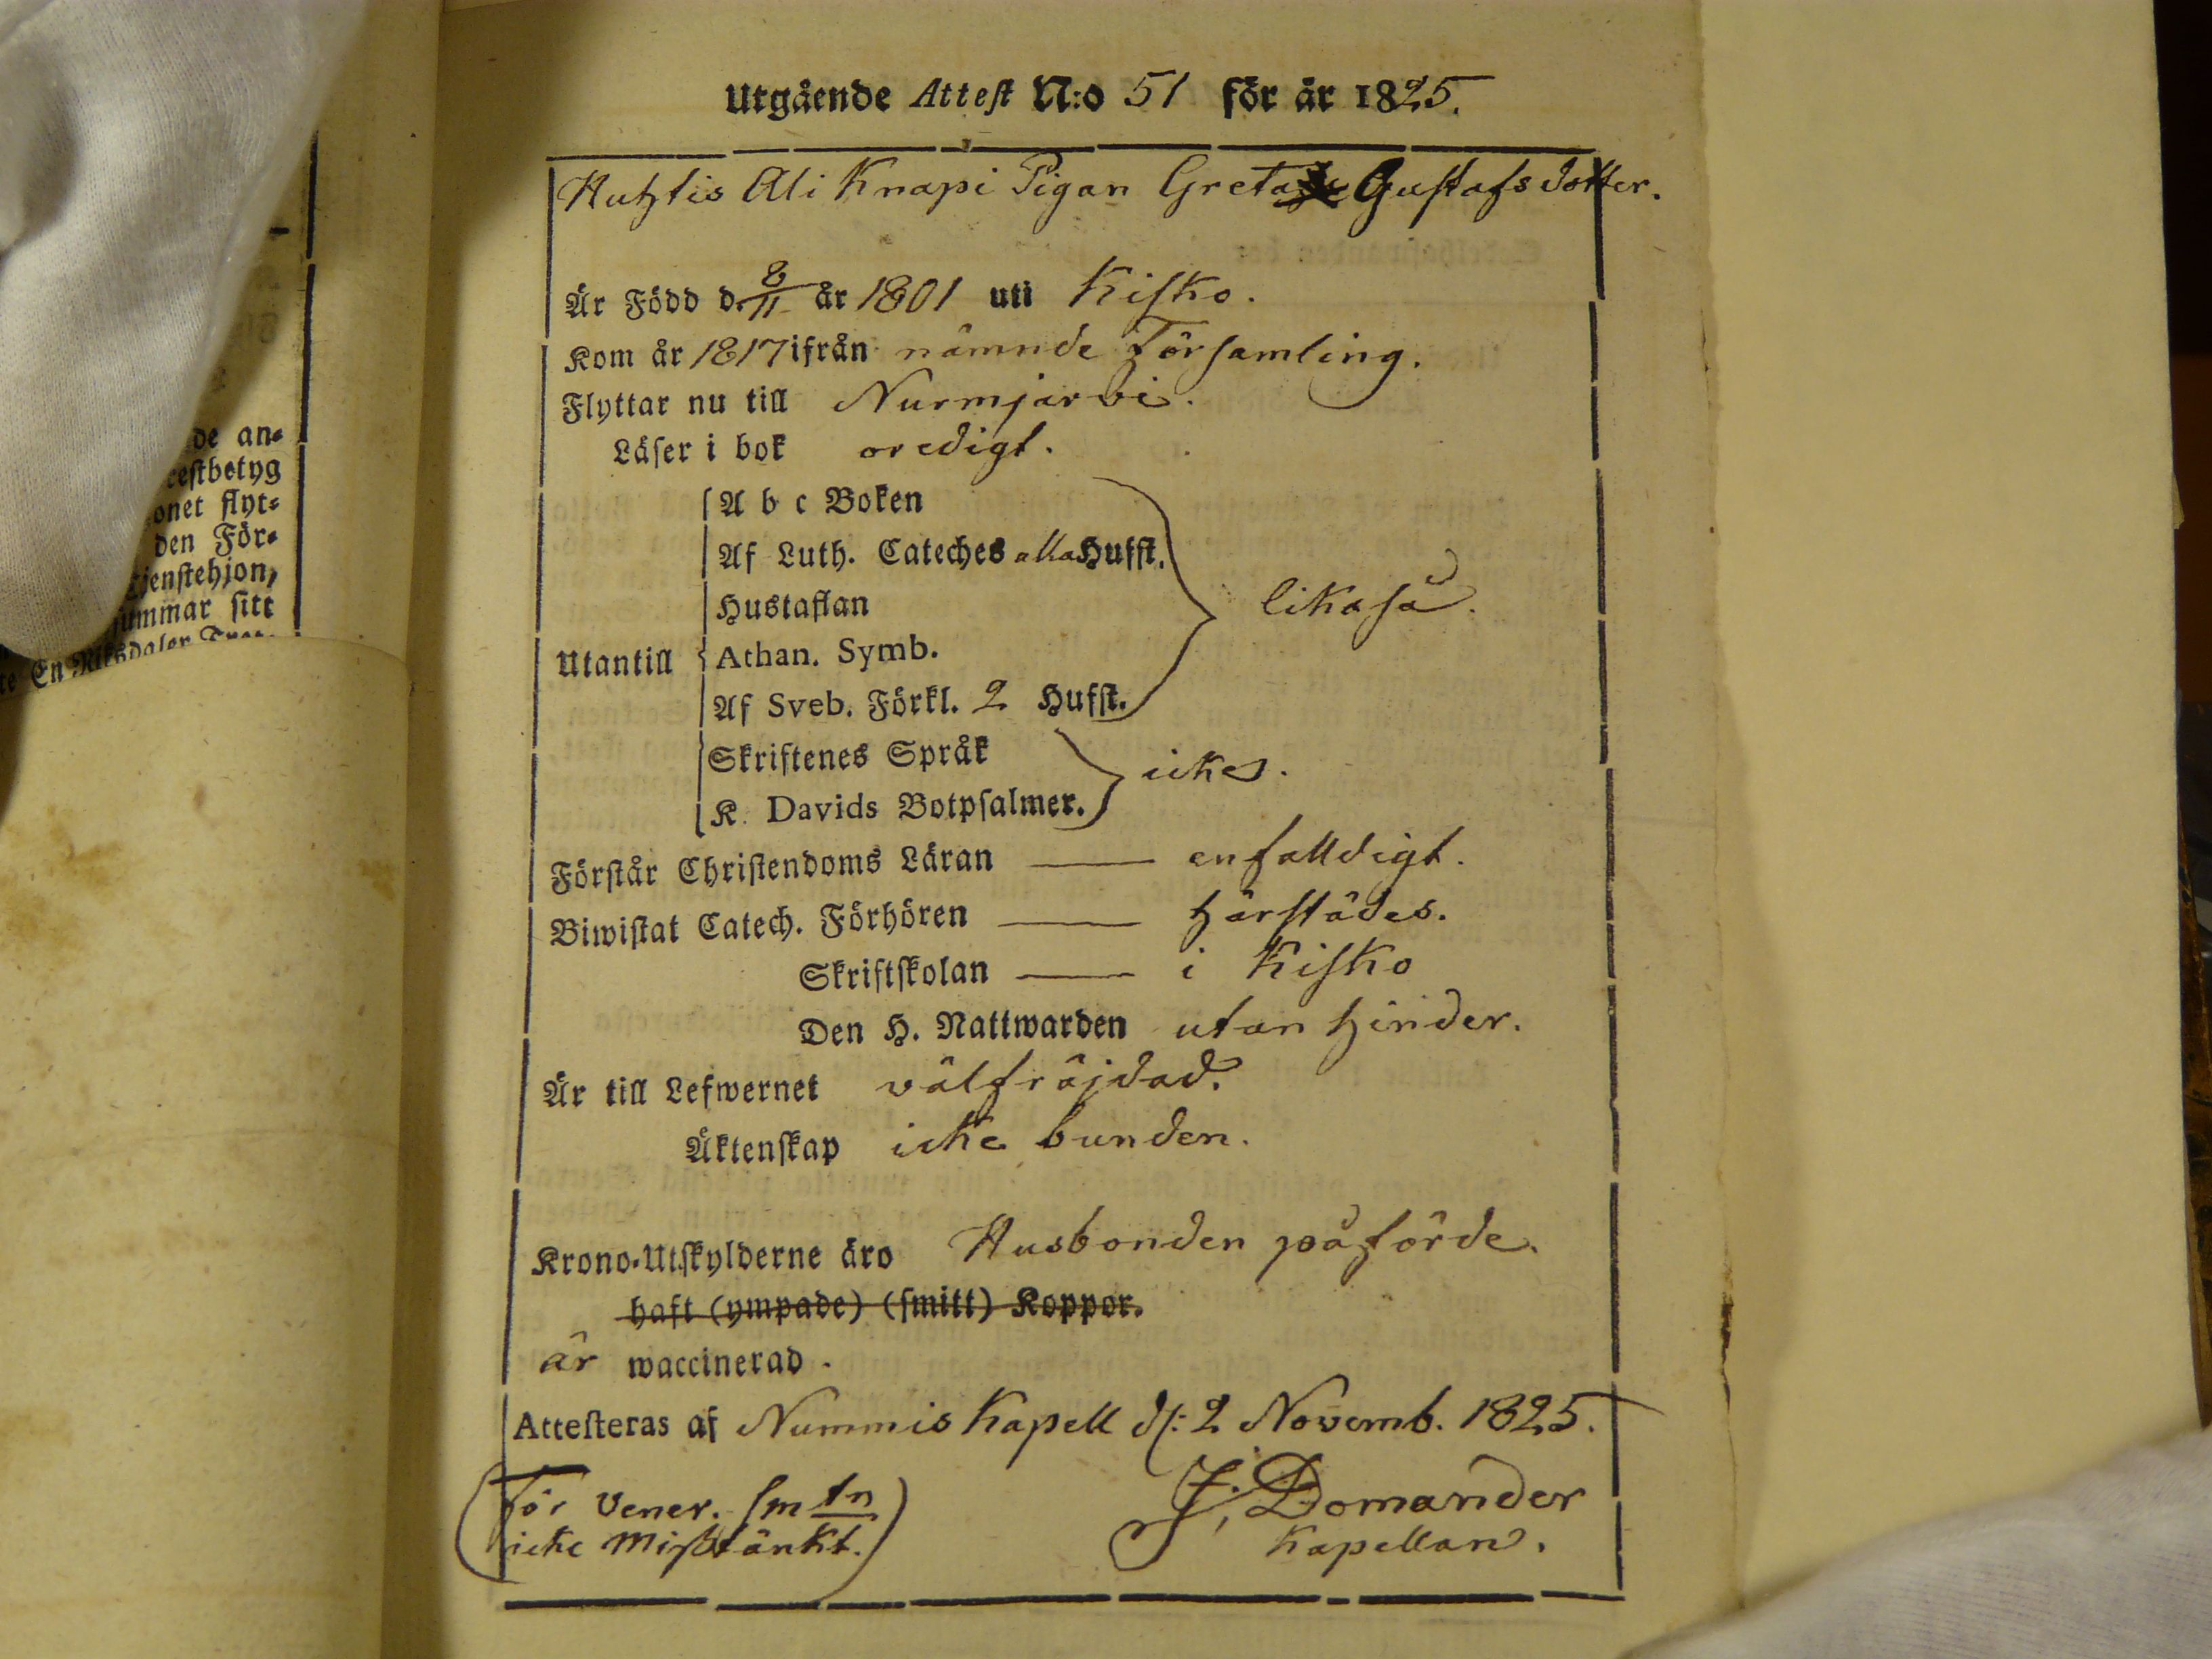 Utgående Attest N:o 51 för år 1825.
Huhtis Ali Knapi Pigan Greta Gustafsdotter.
Är Född d. 8/11 år 1801 uti Kisko.
Kom år 1817 ifrån nämnde Församling.
Flyttar nu till Nurmjärvi.
Läser i bok oredigt.
A b c Boken
Af Luth. Cateches alla Hufst.
Hustaflan
likaså.
Utantill
Athan. Symb.
Af Sveb. Förkl. 2 Hufst.
Skriftenes Språk
icke.
K. Davids Botpsalmer.
Förstår Christendoms Läran — enfalldigt.
Biwistat Catech. Förhören — härstädes.
Skriftskolan — i Kisko
Den H. Nattwarden utan hinder.
Är till Lefwernet välfräjdad.
Äktenskap icke bunden.
Krono-Utskylderne äro Husbonden påförde.
haft (ympade) (smitt) Koppor.
är waccinerad.
Attesteras af Nummis Kapell d: 2 Novemb. 1825.
(För Vener. Smtn
icke Misstänkt.)
J. Domander
Kapellan.
de an-
cestbetyg
onet flyt-
den För-
tjenstehjon,
summar sitt
En Riksdaler